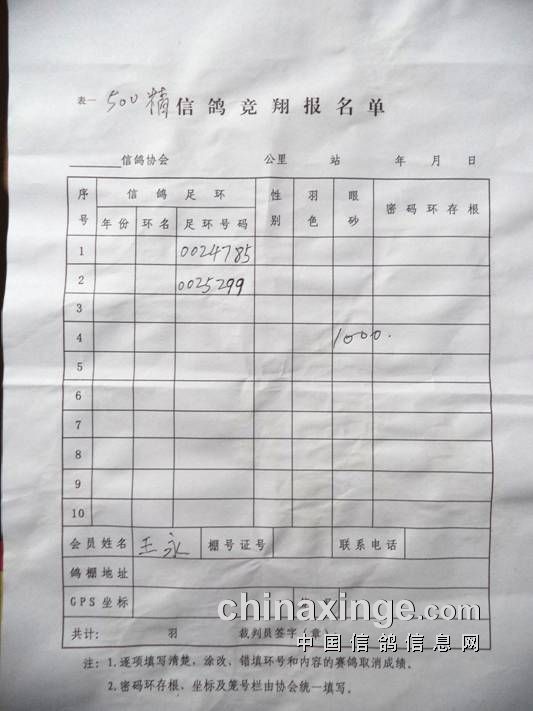 表一 500精 信鸽竞翔报名单
信鸽协会 公里 站 年 月 日
序号 信鸽足环 性别 羽色 眼砂 密码环存根
年份 环名 足环号码
1 0024785
2 0025299
3
4 1000.
5
6
7
8
9
10
会员姓名 王永 棚号证号 联系电话
鸽棚地址
GPS坐标
共计: 羽 裁判员签字(章)
chinaxinge.com
中国信鸽信息网
注:1.逐项填写清楚,涂改、错填环号和内容的赛鸽取消成绩。
2.密码环存根、坐标及笼号栏由协会统一填写。